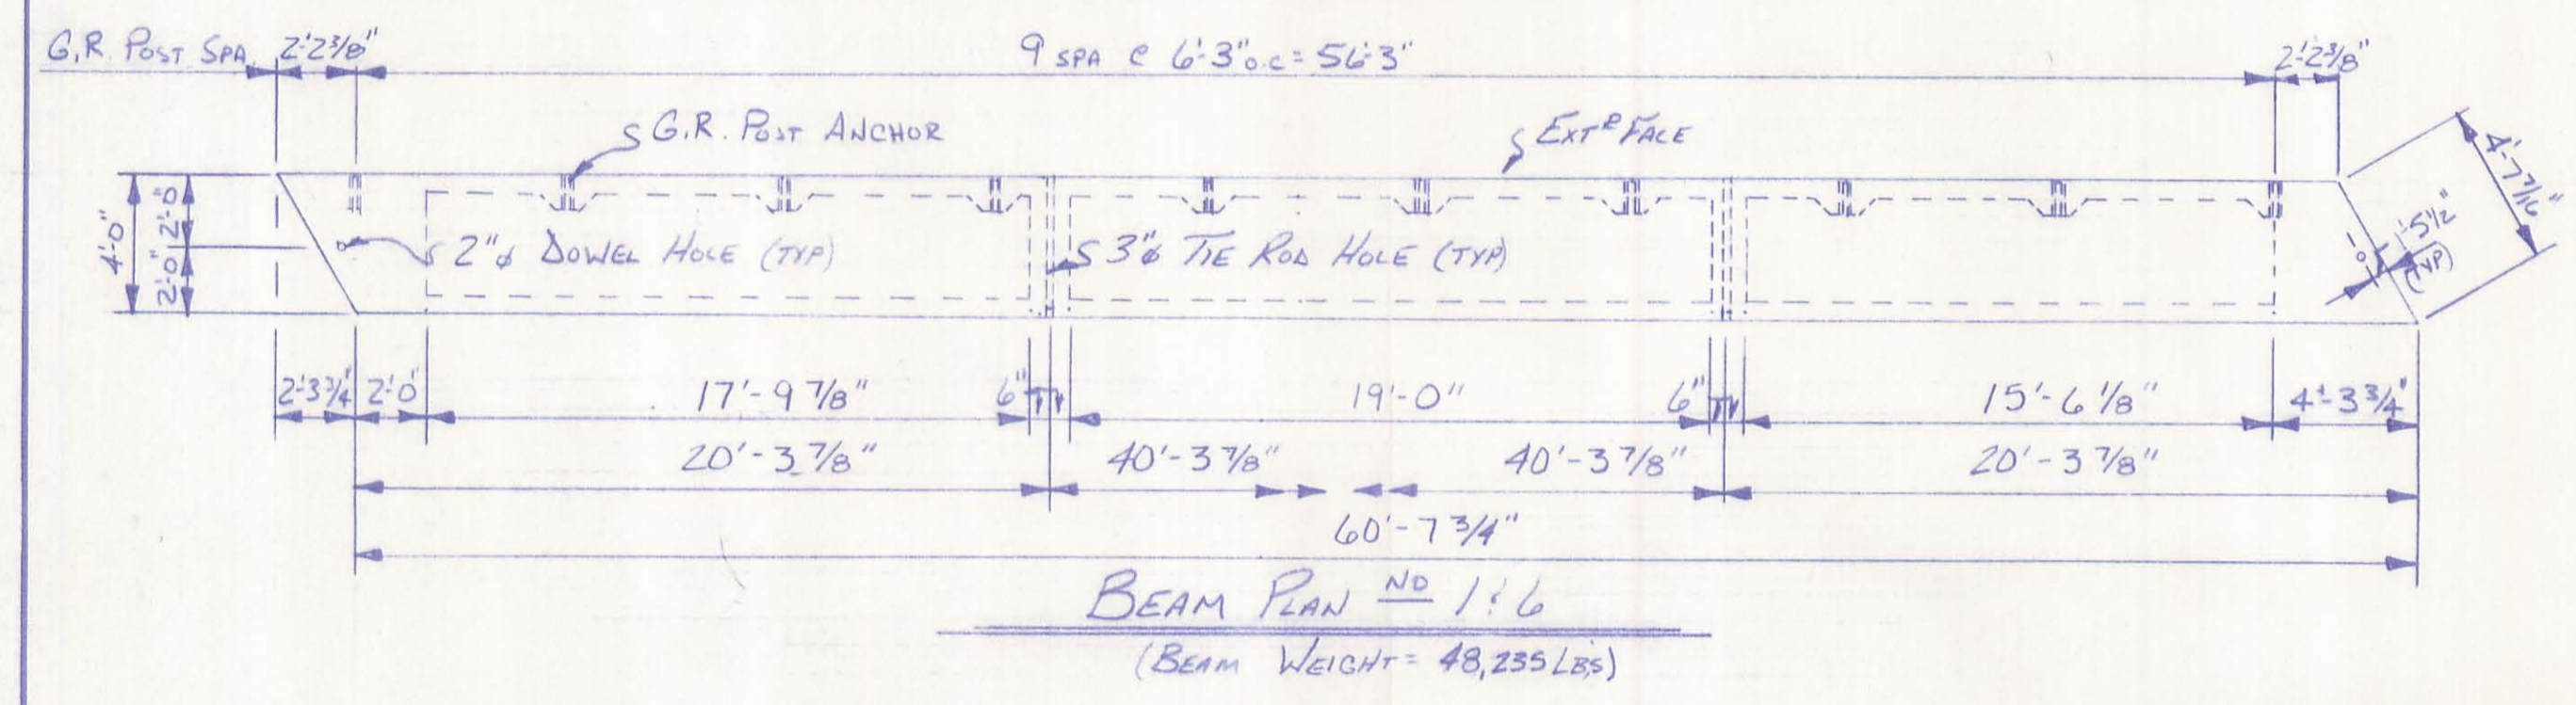 G.R. POST SPA. 2'-2 3/8" 9 SPA @ 6'-3" o.c = 56'-3" 2'-2 3/8"
G.R. POST ANCHOR EXTR FACE
4'-0" 2'-0" 2'-0"
2"ϕ DOWEL HOLE (TYP) 3"ϕ TIE ROD HOLE (TYP)
4'-7 7/16"
5 1/2"
(TYP)
2'-3 3/4" 2'-0" 17'-9 7/8" 6" 19'-0" 6" 15'-6 1/8" 4'-3 3/4"
20'-3 7/8" 40'-3 7/8" 40'-3 7/8" 20'-3 7/8"
60'-7 3/4"
BEAM PLAN NO 1 & 6
(BEAM WEIGHT = 48,235 LBS)